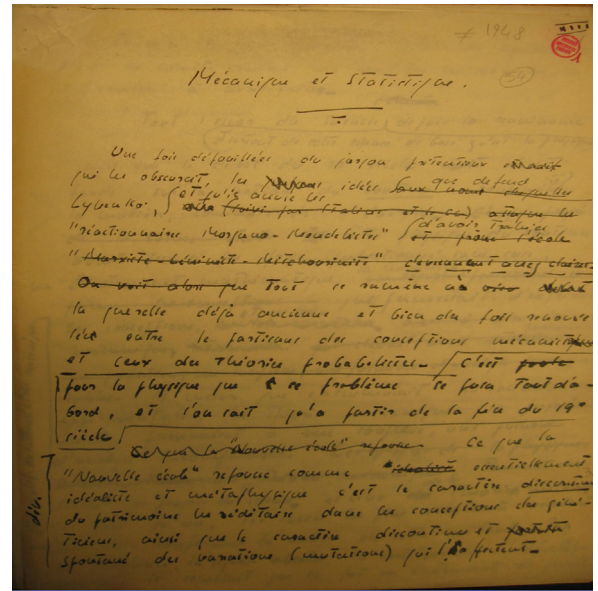 ≠ 1948
54
Mécanique et Statistique.
I.
Une fois dépouillées du jargon prétentieux
qui les obscurcit, les idées que défend
Lyssenko, et qu'il accuse les
"réactionnaires Morgano-Mendelistes" d'avoir trahies
"Marxiste-Léniniste-Mitchouriniste" deviennent assez claires.
On voit alors que tout se ramène à
la querelle déjà ancienne et bien des fois renouve
lée entre les partisans des conceptions mécanistes
et ceux des théories probabilistes. C'est
pour la physique que ce problème se posa tout d'a-
bord, et l'on sait qu'à partir de la fin du 19e
siècle
Ce que la "Nouvelle école" refuse Ce que la
"Nouvelle école" refuse comme essentiellement
idéaliste et métaphysique c'est le caractère discontinu
du patrimoine héréditaire dans les conceptions des géné-
ticiens, ainsi que le caractère discontinu et
spontané des variations (mutations) qui l'affectent.
div.